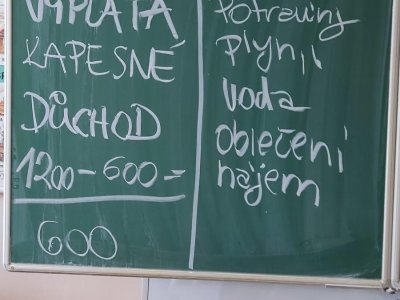 VÝPLATA
KAPESNÉ
DŮCHOD
1200-600=
600
Potraviny
Plyn,,
voda
oblečení
nájem